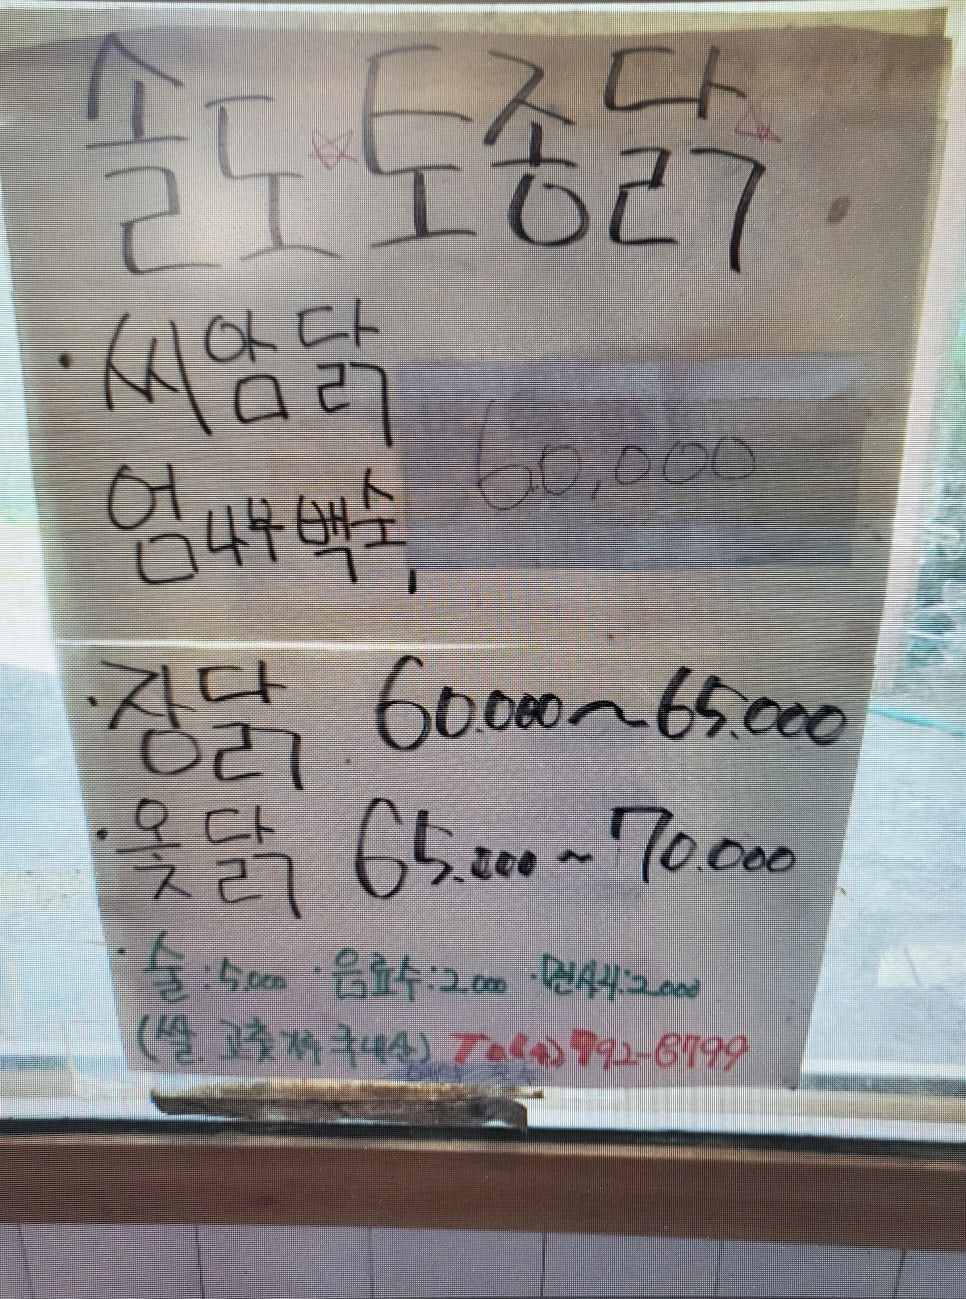 솔도토종닭
· 씨암닭
엄나무백숙 60,000
· 장닭 60.000~65.000
· 옻닭 65.000~70.000
· 술:5.000 · 음료수:2.000 · 면사리:2.000
(쌀. 고춧가루 국내산) T.042)792-8799